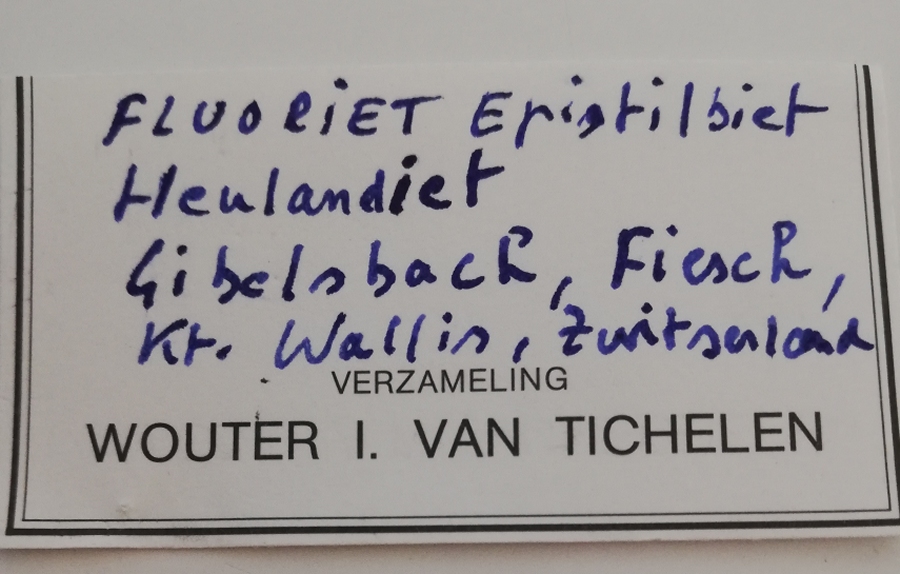 FLUORIET Epistilbiet
Heulandiet
Gibelsbach, Fiesch,
Kt. Wallis, Zwitserland
VERZAMELING
WOUTER I. VAN TICHELEN